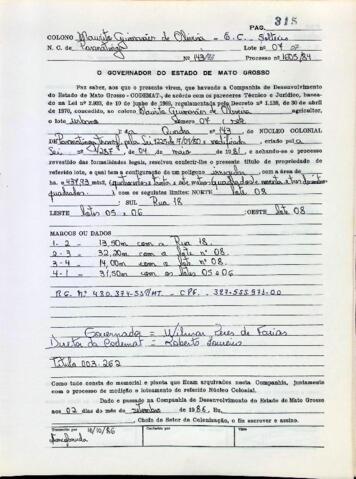 PAG. 315
COLONO Mauricio Guimarães de Oliveira - E.C. Solteiro
N. C. de Paranatinga Lote nº 04
Nº 43/86 Processo nº 1605/84
O GOVERNADOR DO ESTADO DE MATO GROSSO
Faz saber, aos que o presente virem, que havendo a Companhia de Desenvolvimento
do Estado de Mato Grosso - CODEMAT, de acordo com os pareceres Técnico e Jurídico, basea-
do na Lei nº 2.903, de 10 de junho de 1969, regulamentada pelo Decreto nº 1.138, de 30 de abril
de 1970, concedido ao colono Mauricio Guimarães de Oliveira agricultor,
o lote urbano número 04
Quadra nº 43 DE NÚCLEO COLONIAL
DE Paranatinga criado pela
Lei nº de 04 de maio de 1981, e achando-se o processo
revestido das formalidades legais, resolveu conferir-lhe o presente título de propriedade do
referido lote, o qual tem a configuração de um polígono irregular com a área de
ha
quadrados) com os seguintes limites: NORTE: lote 08
: SUL Rua 18
LESTE lotes 05 e 06 ; OESTE lote 08
MARCOS OU DADOS
1 - 2 - 13,50m com a Rua 18.
2 - 3 - 32,20m com o lote nº 08.
3 - 4 - 14,00m com o lote nº 08.
4 - 1 - 31,50m com os lotes 05 e 06
R.G. Nº 480.374-SSP/MT. - CPF. 387.555.971-00
Governador = Wilmar Peres de Farias
Diretor da Codemat = Roberto Loureiro
Título 003.262
Como tudo consta do memorial e planta que ficam arquivados nesta Companhia, juntamente
com o processo de medição e loteamento do referido Núcleo Colonial.
Dado e passado na Companhia de Desenvolvimento do Estado de Mato Grosso
aos 02 dias do mês de setembro de 1986. Eu,
, Chefe do Setor de Colonização, o fiz escrever e assino.
Transcrito por 10/10/86
Conferido
Visto